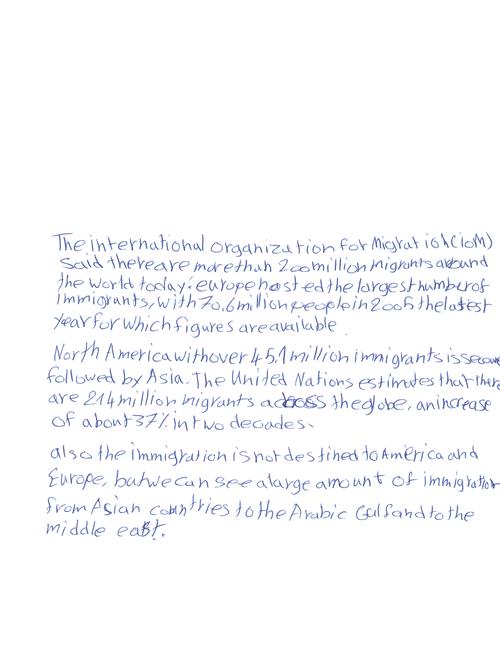 The international organization for Migration (IoM)
said there are more than 200 million migrants around
the world today. europe hosted the largest number of
immigrants, with 70.6 million people in 2005 the latest
year for which figures are available.
North America with over 45.1 million immigrants is second
followed by Asia. The United Nations estimates that there
are 214 million migrants across the globe, an increase
of about 37% in two decades.
also the immigration is not destined to America and
Europe, but we can see a large amount of immigration
from Asian countries to the Arabic Gulf and to the
middle east.